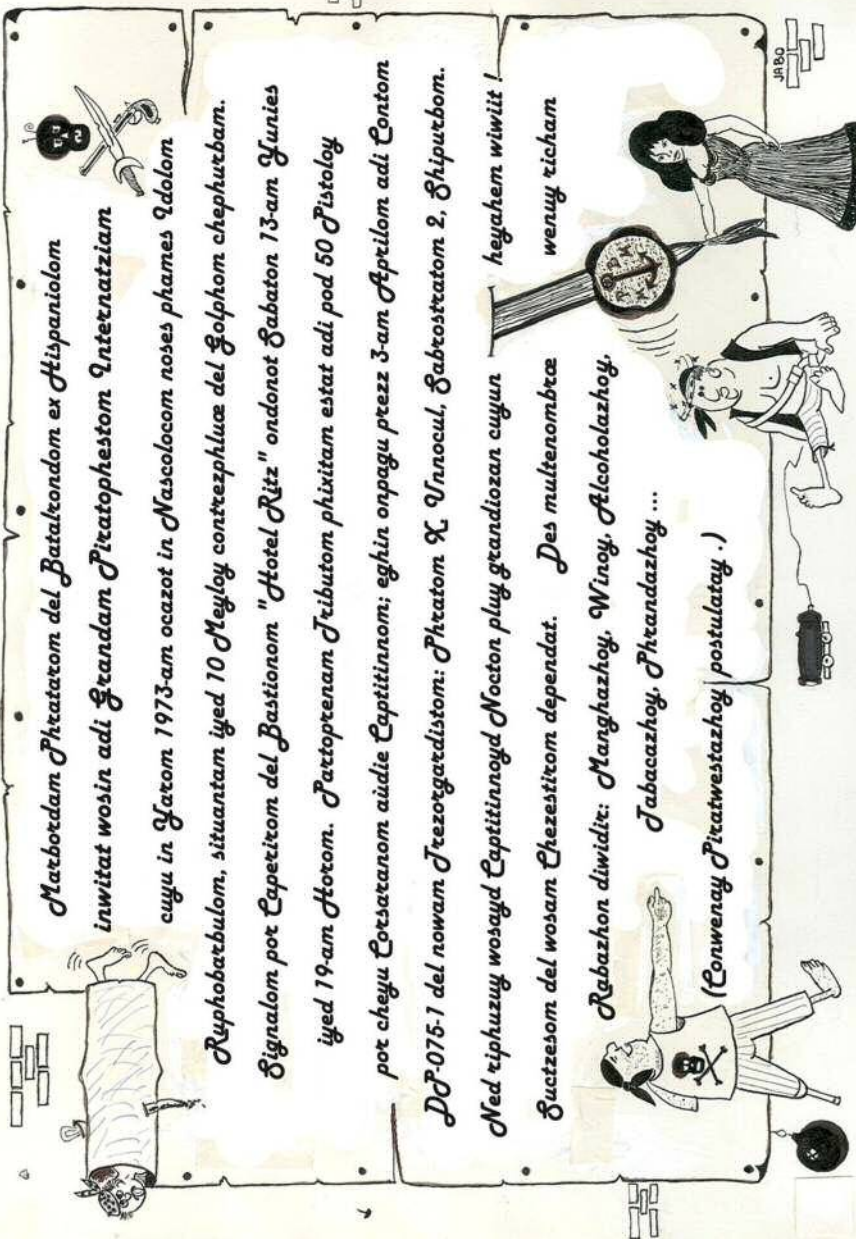 Marbordam Phratarom del Batalrondom ex Hispaniolom
inwitat wosin adi Grandam Piratophestom Internatziam
cuyu in Yarom 1973-am ocazot in Nascolocom noses phames Idolom
Ruphobarbulom, situantam iyed 10 Meyloy contrezphluœ del Golphom chephurbam.
Signalom por Caperirom del Bastionom "Hotel Ritz" ondonot Sabaton 13-am Yunies
iyed 19-am Horom. Partoprenam Tributom phixitam estat adi pod 50 Pistoloy
por cheyu Corsaranom aùdie Captitinnom; eghin onpagu prezz 3-am Aprilom adi Contom
DP-075-1 del nowam Trezorgardistom: Phratom X. Unnocul, Sabrostratom 2, Shipurbom.
Ned riphuzuy wosayd Captitinnoyd Nocton pluy grandiozan cuyun heyahem wiwiit !
Suctzesom del wosam Chezestirom dependat. Des multenombrœ wenuy richam
Rabazhon diwidir: Manghazhoy, Winoy, Alcoholazhoy,
Tabacazhoy, Phrandazhoy ...
(Conwenay Piratwestazhoy postulatay .)
JABO